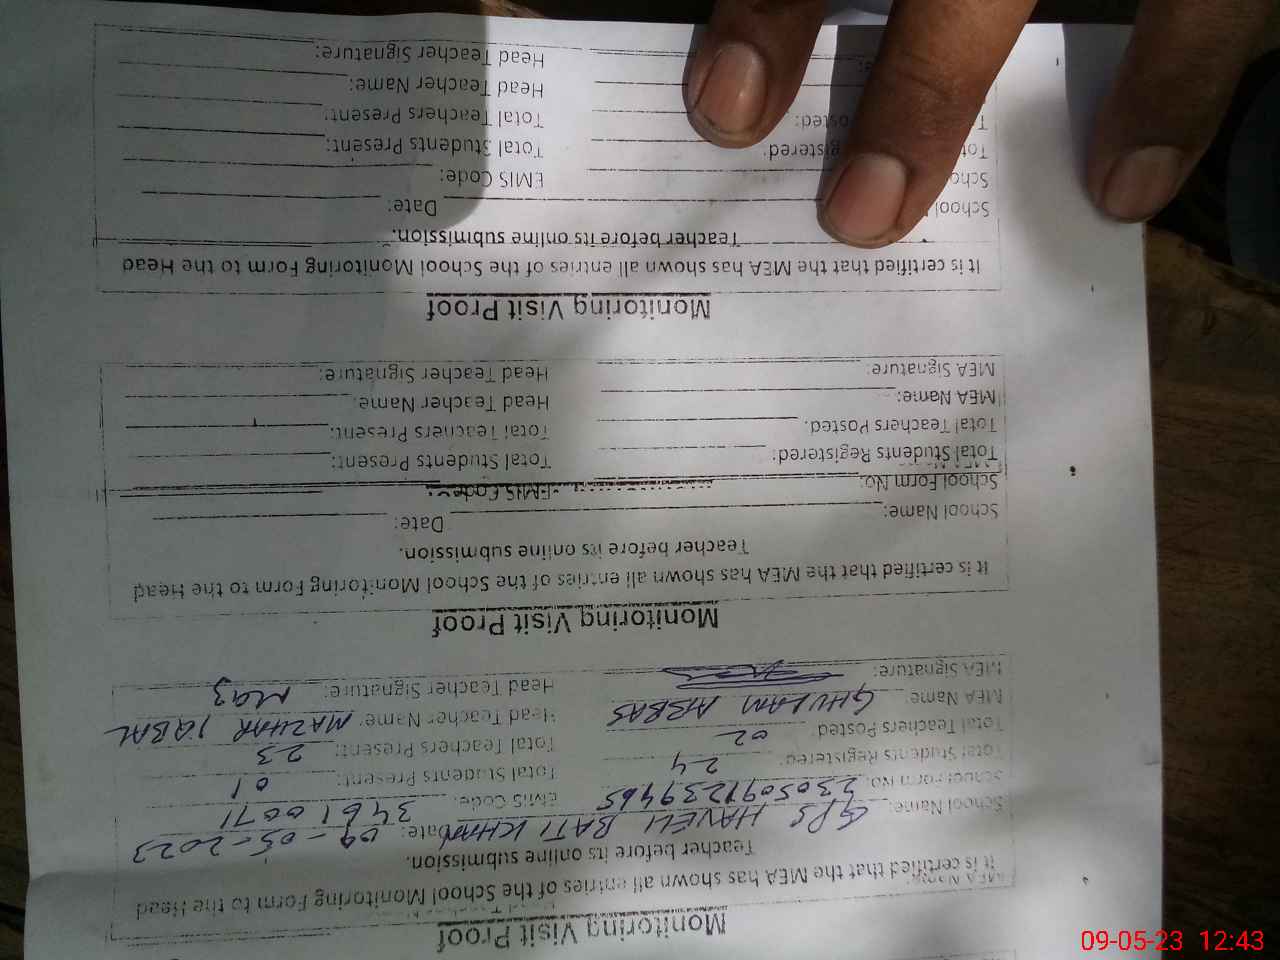 Monitoring Visit Proof
It is certified that the MEA has shown all entries of the School Monitoring Form to the Head
Teacher before its online submission.
School Name: GPS HAVELI BATI KHAN Date: 09-05-2023
School Form No: 2305091239465 EMIS Code: 34610071
Total Students Registered: 24 Total Students Present: 01
Total Teachers Posted: 02 Total Teachers Present: 23
MEA Name: GHULAM ABBAS Head Teacher Name: MAZHAR IQBAL
MEA Signature: Head Teacher Signature: Maz
Monitoring Visit Proof
It is certified that the MEA has shown all entries of the School Monitoring Form to the Head
Teacher before its online submission.
School Name: Date:
School Form No: EMIS Code:
Total Students Registered: Total Students Present:
Total Teachers Posted: Total Teachers Present:
MEA Name: Head Teacher Name:
MEA Signature: Head Teacher Signature:
Monitoring Visit Proof
It is certified that the MEA has shown all entries of the School Monitoring Form to the Head
Teacher before its online submission.
School Date:
EMIS Code:
Total Students Present:
Total Teachers Present:
Head Teacher Name:
Head Teacher Signature:
09-05-23 12:43